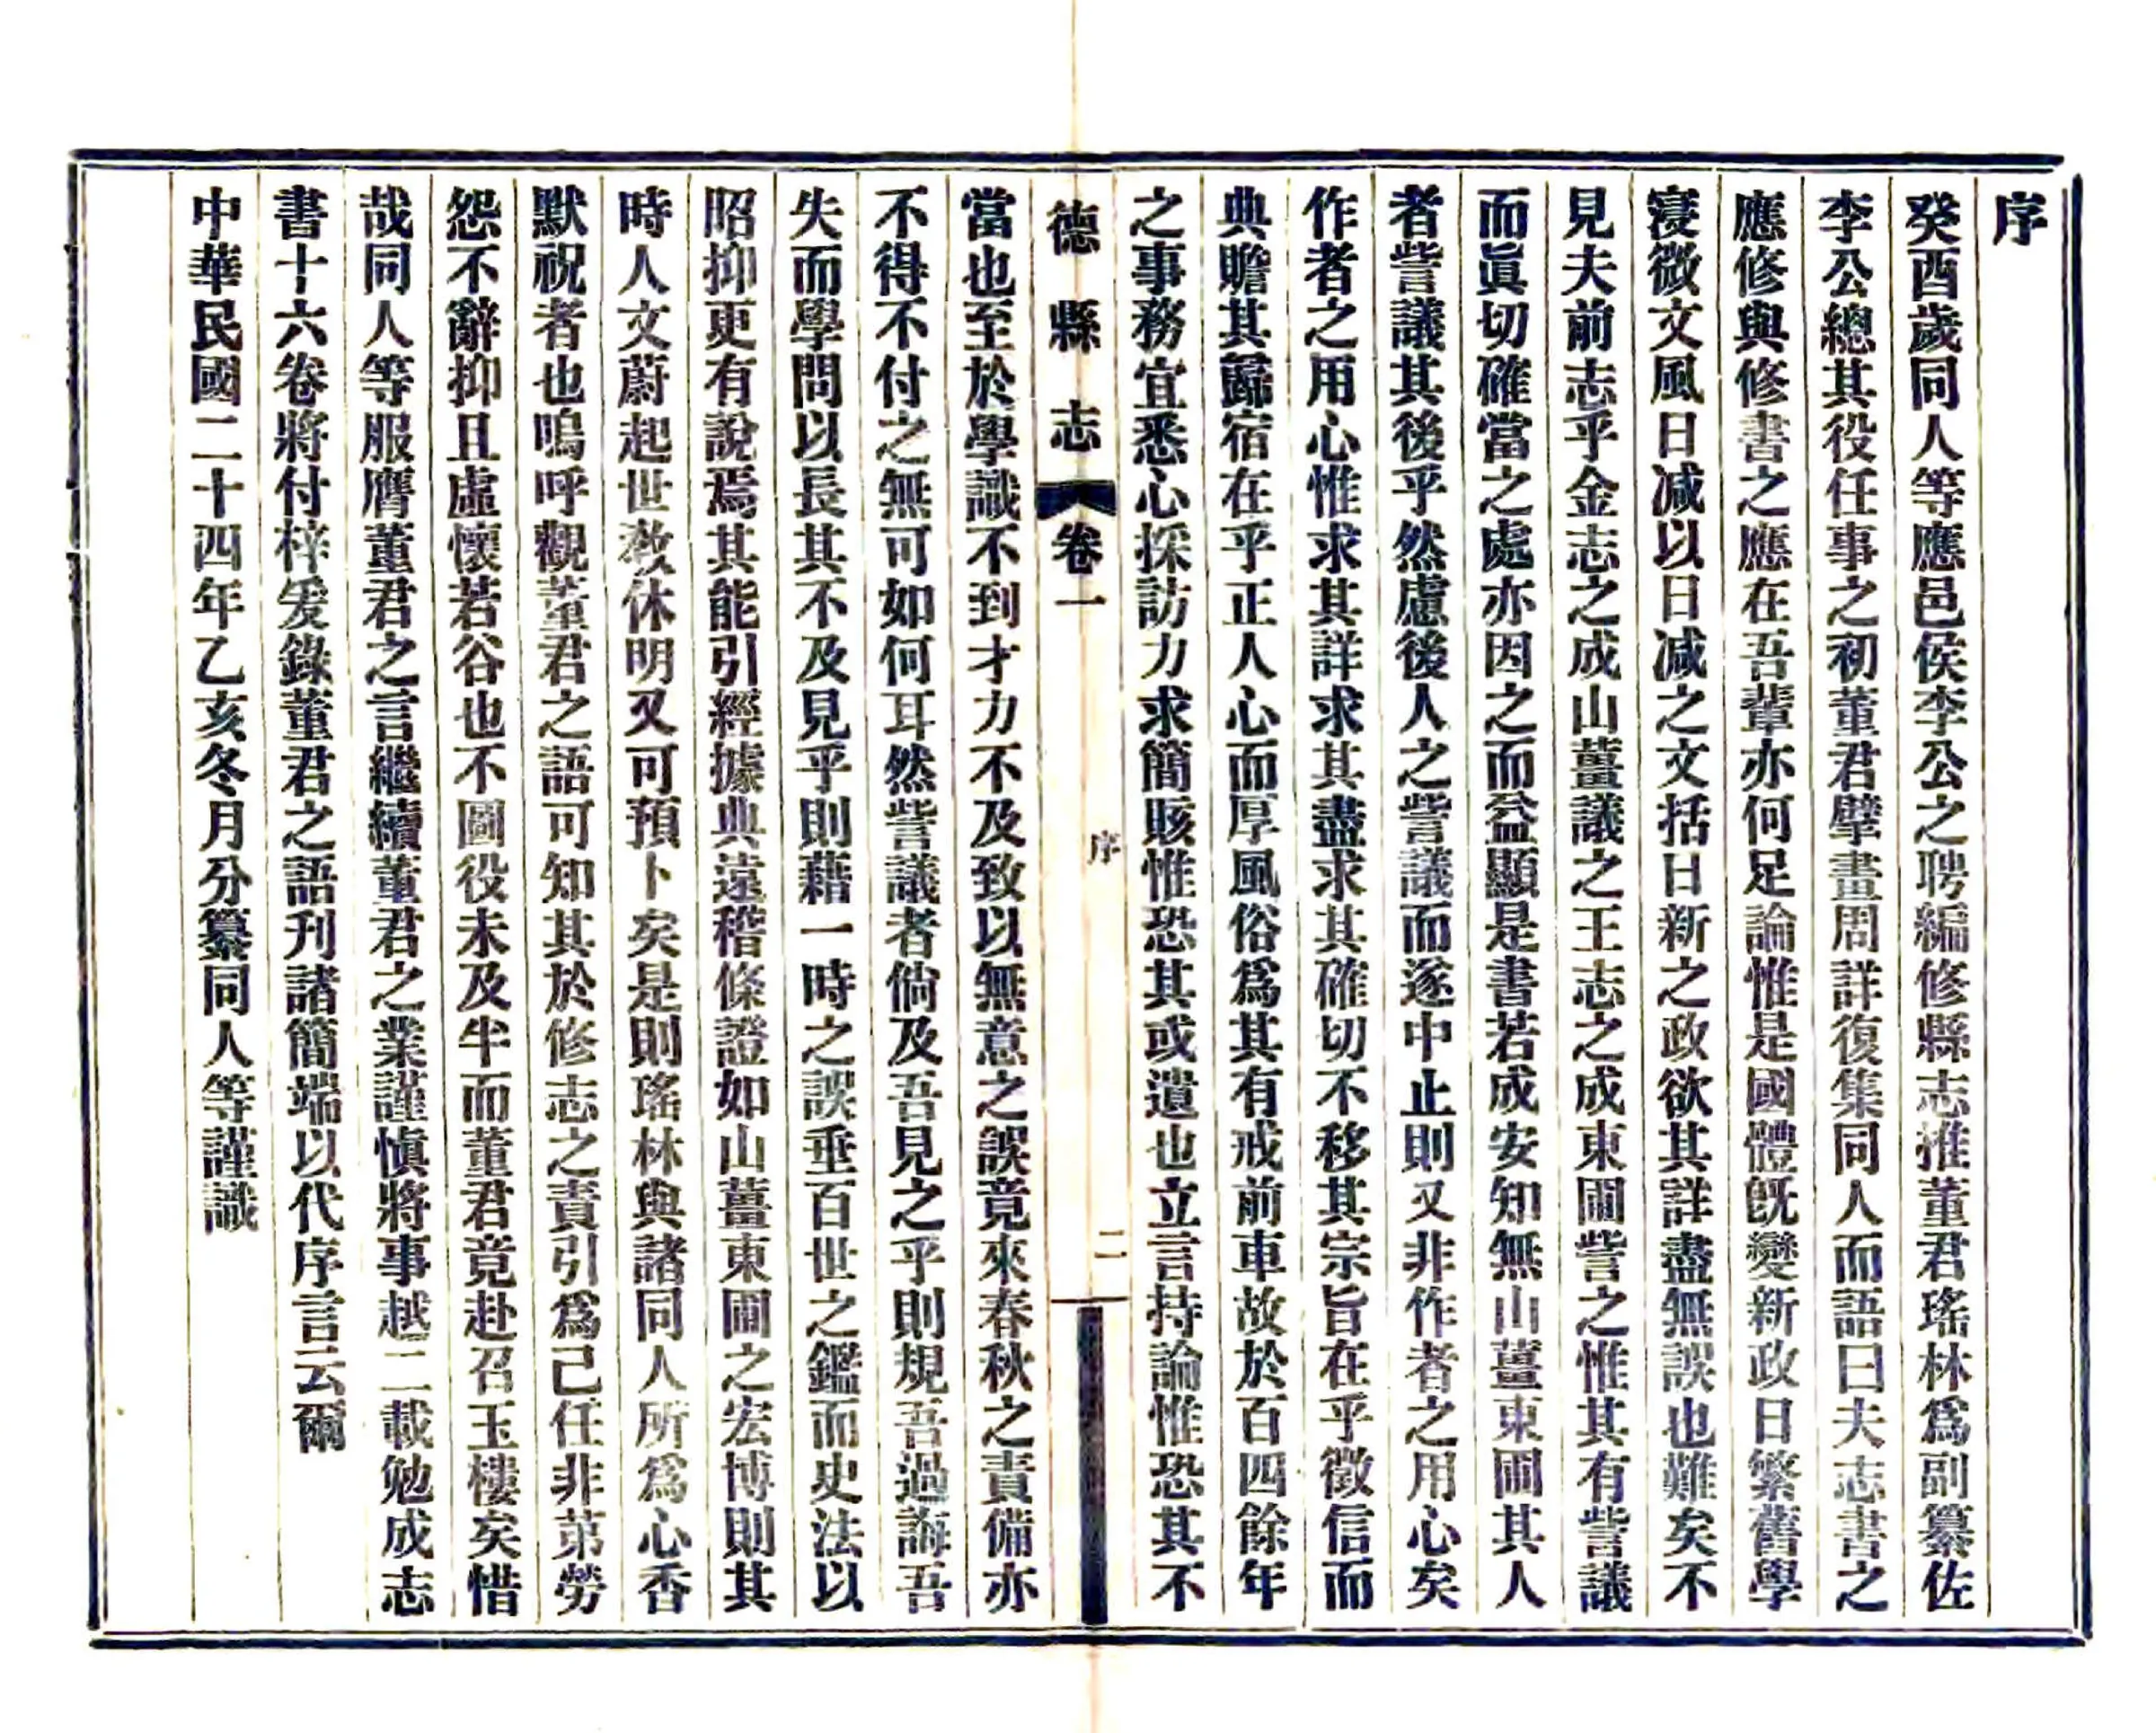 序
癸酉歲同人等應邑侯李公之聘編修縣志推董君瑤林爲副纂佐
李公總其役任事之初董君擘畫周詳復集同人而語曰夫志書之
應修與修書之應在吾輩亦何足論惟是國體旣變新政日繁舊學
寖微文風日減以日減之文括日新之政欲其詳盡無誤也難矣不
見夫前志乎金志之成山薑議之王志之成東圃訾之惟其有訾議
而眞切確當之處亦因之而益顯是書若成安知無山薑東圃其人
者訾議其後乎然慮後人之訾議而遂中止則又非作者之用心矣
作者之用心惟求其詳求其盡求其確切不移其宗旨在乎徵信而
典贍其歸宿在乎正人心而厚風俗爲其有戒前車故於百四餘年
之事務宜悉心採訪力求簡賅惟恐其或遺也立言持論惟恐其不
德縣志 卷一 序 二
當也至於學識不到才力不及致以無意之誤竟來春秋之責備亦
不得不付之無可如何耳然訾議者倘及吾見之乎則規吾過誨吾
失而學問以長其不及見乎則藉一時之誤垂百世之鑑而史法以
昭抑更有說焉其能引經據典遠稽條證如山薑東圃之宏博則其
時人文蔚起世教休明又可預卜矣是則瑤林與諸同人所爲心香
默祝者也嗚呼觀董君之語可知其於修志之責引爲己任非第勞
怨不辭抑且虛懷若谷也不圖役未及半而董君竟赴召玉樓矣惜
哉同人等服膺董君之言繼續董君之業謹愼將事越二載勉成志
書十六卷將付梓爰錄董君之語刊諸簡端以代序言云爾
中華民國二十四年乙亥冬月分纂同人等謹識